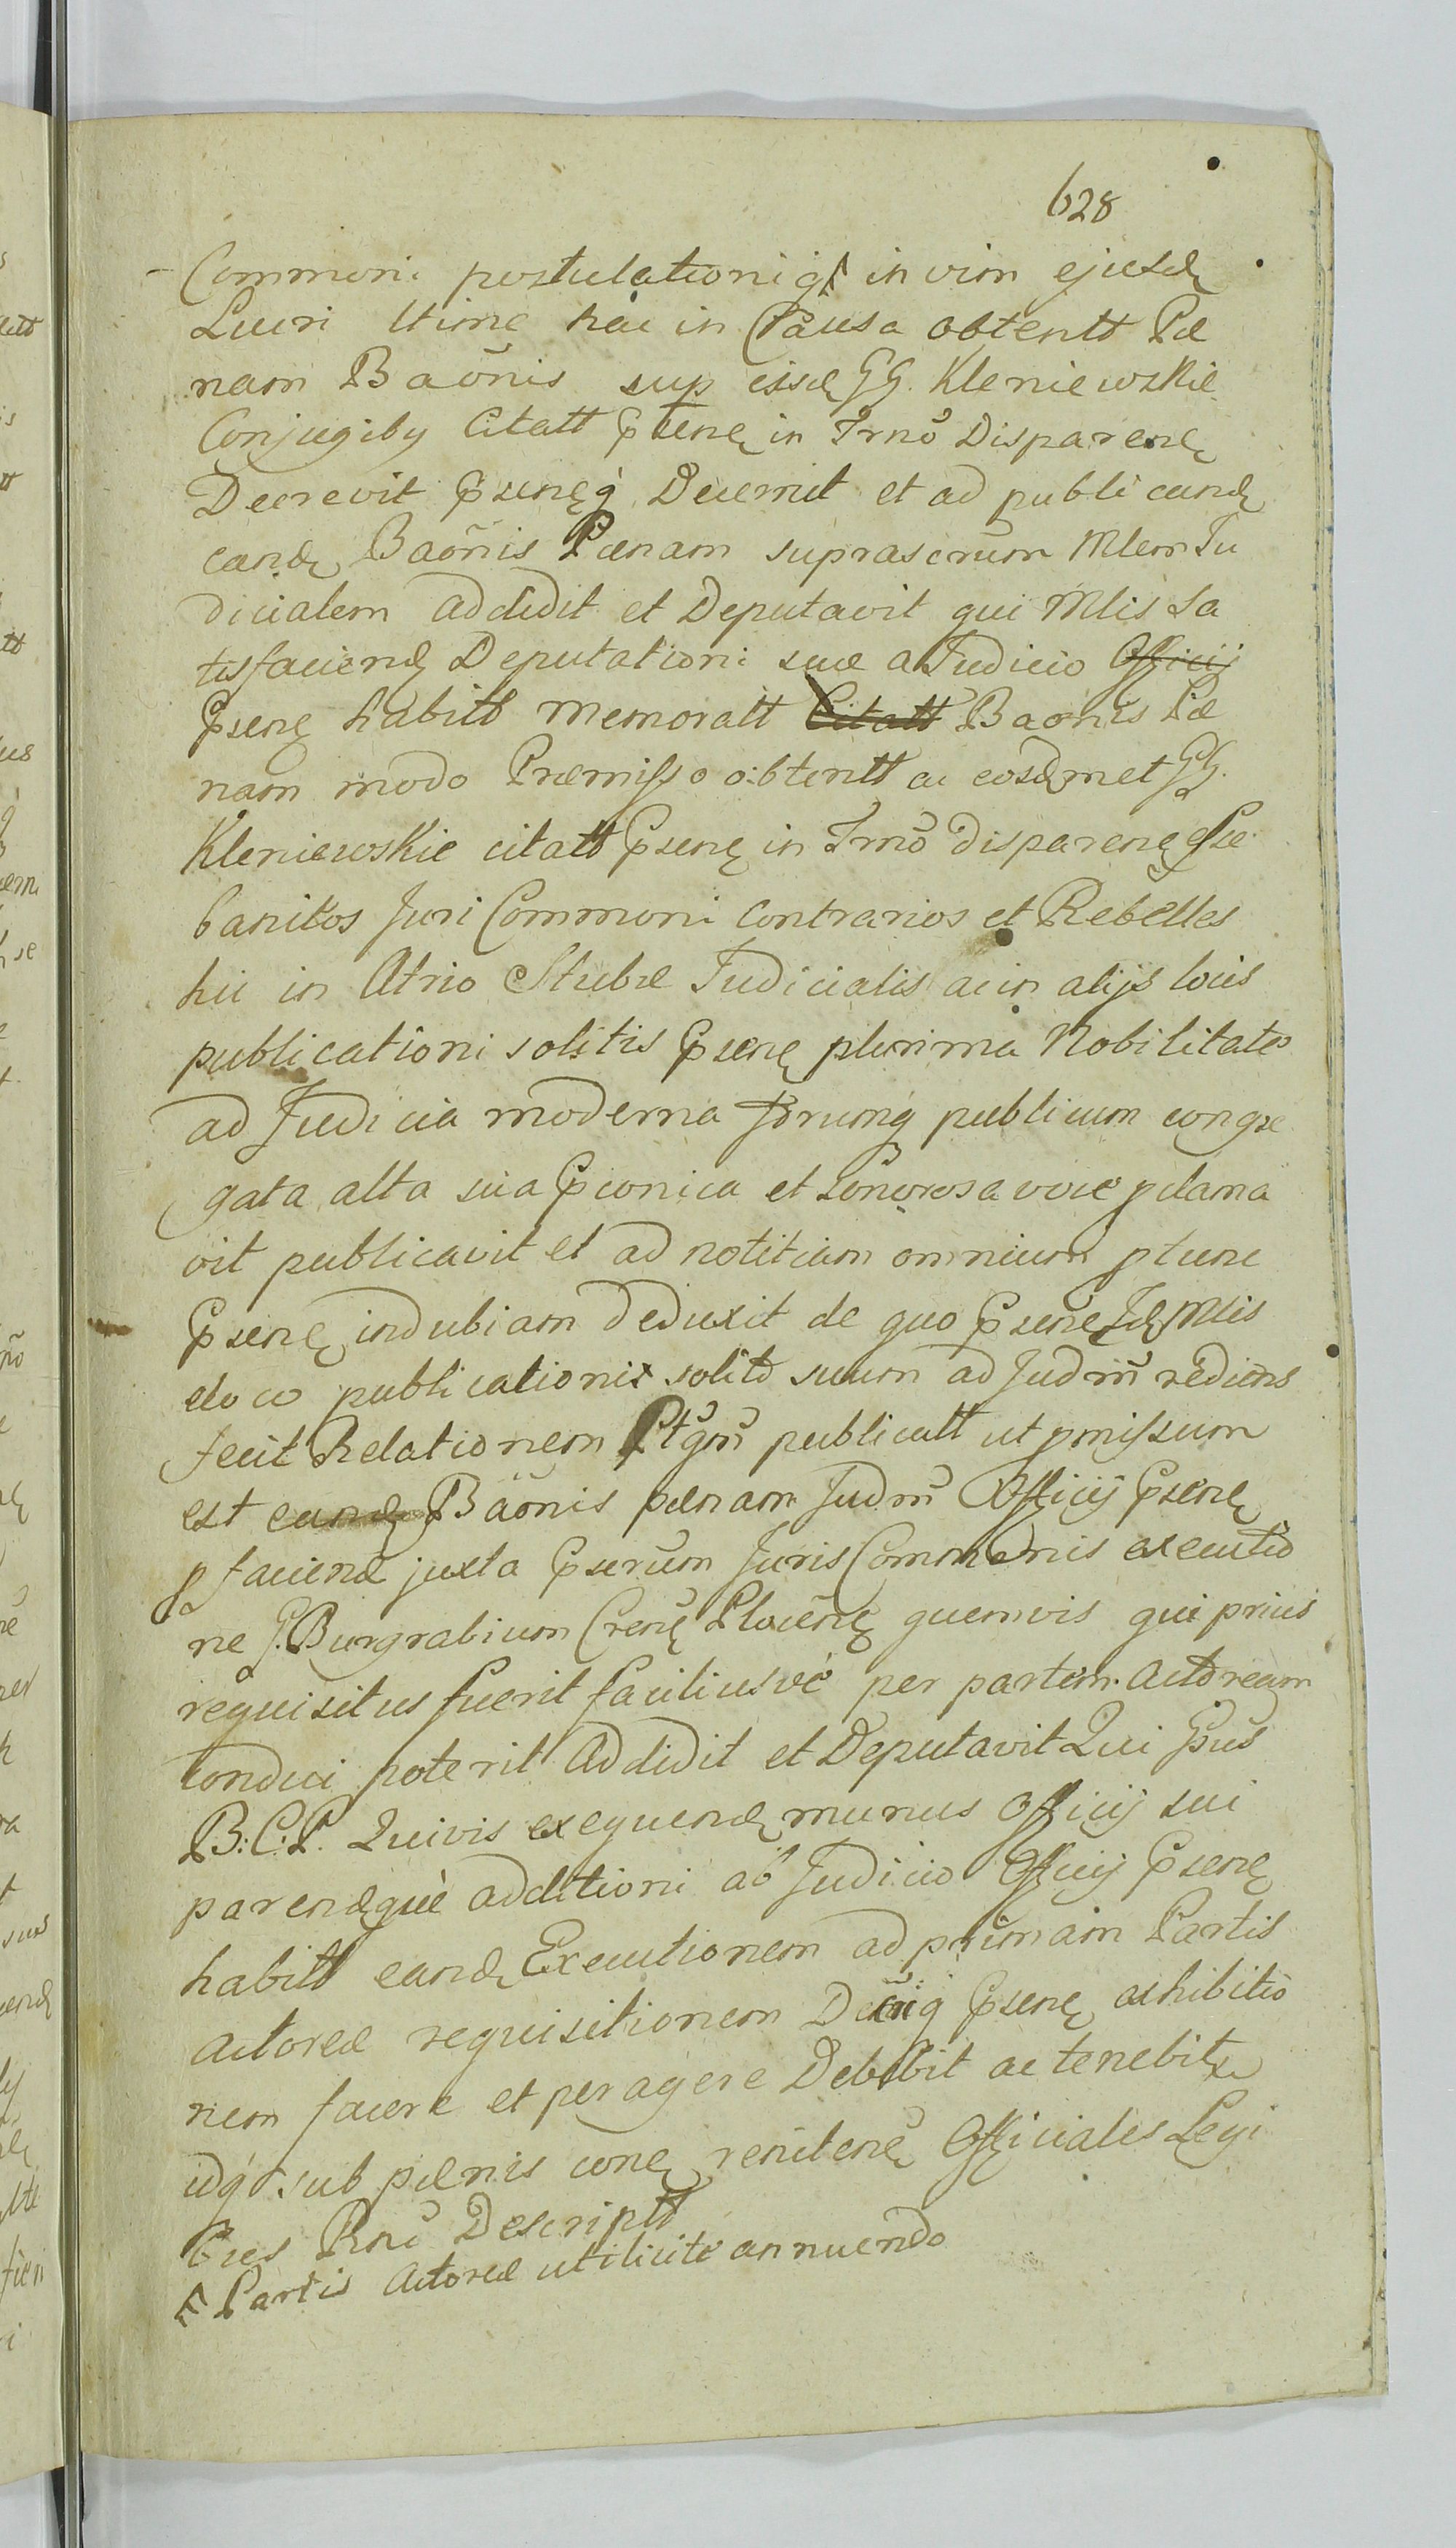 628
Commoni postulationiq in vim ejusd
Lucri Ltime hac in Causa obtentt Pæ
nam Baõnis sup iisd GG. Kleniewskie
Conjugiby Citatt Psene in Trnõ Disparene
Decrevit Pseneq Decernit et ad publicand
eand Baõnis Pænam suprascrum Mlem Ju
dicialem addidit et Deputavit qui Mlis Sa
tisfaciend Deputationi suæ a Judicio Officij
Psene habitt memoratt Citatt Baonis Pæ
nam modo Præmisso obtentt ac eosdmet GG.
Kleniewskie citatt Psene in Trnõ disparene
banitos Juri Commoni Contrarios et Rebelles
hic in Atrio Stubæ Judicialis ac in alijs locis
publicationi solitis Psene plurima Nobilitate
ad Judicia moderna Forumq publicum congre
gata alta sua Pconica et Sonorosa voce pclama
vit publicavit et ad notitiam omnium ptune
Psene indubiam deduxit de quo Psene Id Mlis
eloco publicationis solito suum ad Judm rediens
fecit Relationem publicatt ut pmissum
est eand Baõnis pænam Judm Officij Psene
p faciend juxta Pserum Juris Commonis executio
ne G. Burgrabium Crene Plocene quemvis qui prius
requisitus fuerit faciliusve per partem Actoream
conduci poterit Addidit et Deputavit Qui Psus
B: C: P. Quivis exequend munus Officij sui
parendque additioni ab Judicio Officij Psene
habitt eand Executionem ad primam Partis
Actoreæ requisitionem Psene exhibitio
nem facere et peragere Debebit ac tenebit
idq sub pænis cone renitene Officiales Legi
bus Rni Descriptt
Partis Actoreæ utilicite annuendo